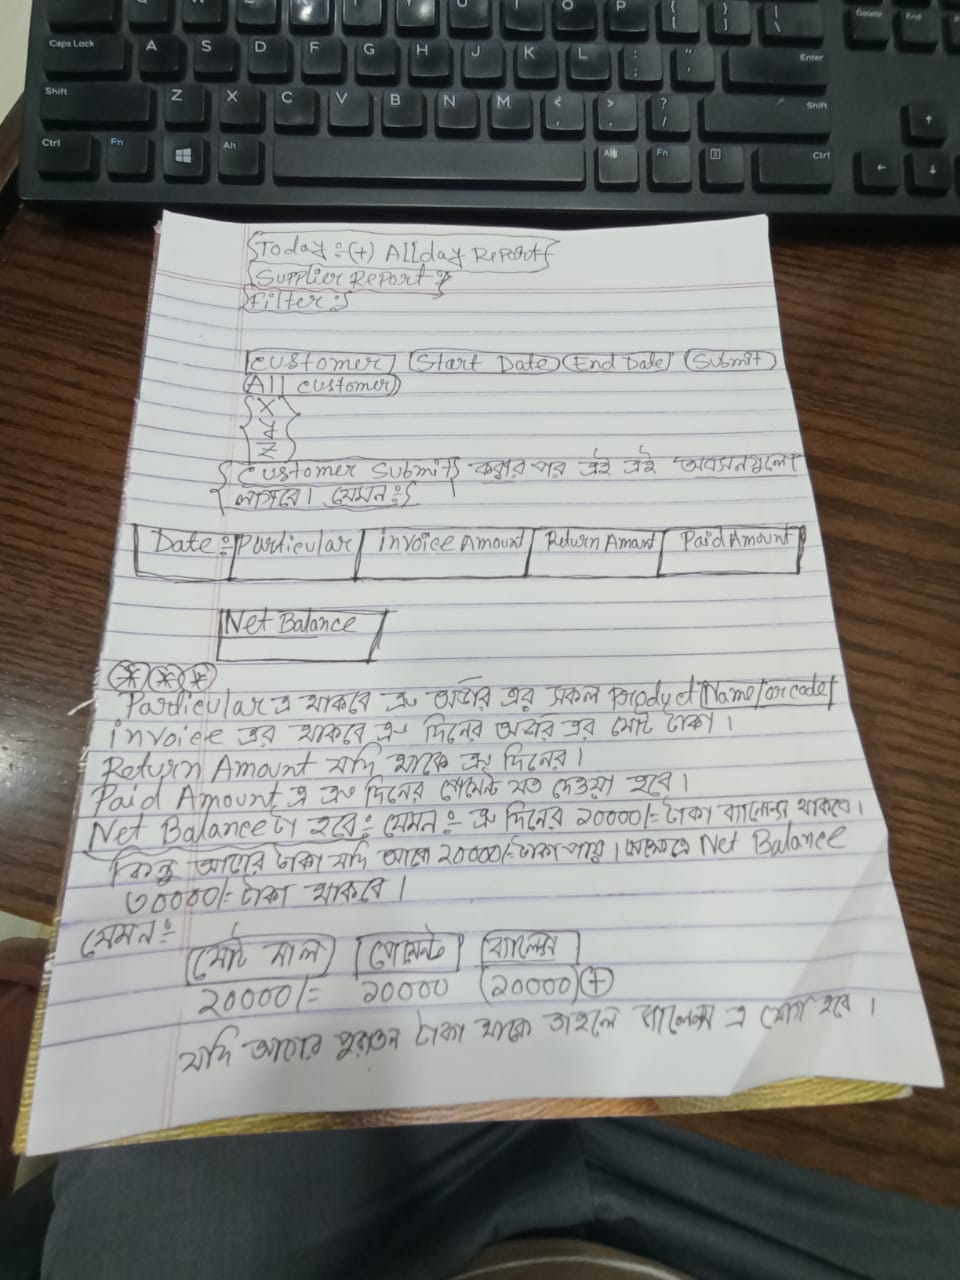 Y U I O P { [ } ] | \ Delete End
Caps Lock A S D F G H J K L : ; " ' Enter
Shift Z X C V B N M < , > . ? / Shift ↑
Ctrl Fn Alt Alt Fn Ctrl ← ↓
Today :- (+) Allday Report
Supplier Report :
Filter :
Customer Start Date End Date Submit
All customer
X
y
Z
Customer Submit করার পর এই এই অপশনগুলো
লাগবে। যেমন :
Date :- Particular invoice Amount Return Amount Paid Amount
Net Balance
Particular এ থাকবে ঐ অর্ডার এর সকল Product Name/or code/
invoice এর থাকবে ঐ দিনের অর্ডার এর মোট টাকা।
Return Amount যদি থাকে ঐ দিনের।
Paid Amount এ ঐ দিনের পেমেন্ট যত দেওয়া হবে।
Net Balance টা হবে : যেমন : ঐ দিনের ১০০০০/= টাকা ব্যালেন্স থাকবে।
কিন্তু আগের টাকা যদি আরো ২০০০০/= টাকা পায়। সেক্ষেত্রে Net Balance
৩০০০০/= টাকা থাকবে।
যেমন :-
মোট মাল পেমেন্ট ব্যালেন্স
২০০০০/= ১০০০০ (১০০০০) (+)
যদি আগের পুরাতন টাকা থাকে তাহলে ব্যালেন্স এ যোগ হবে।